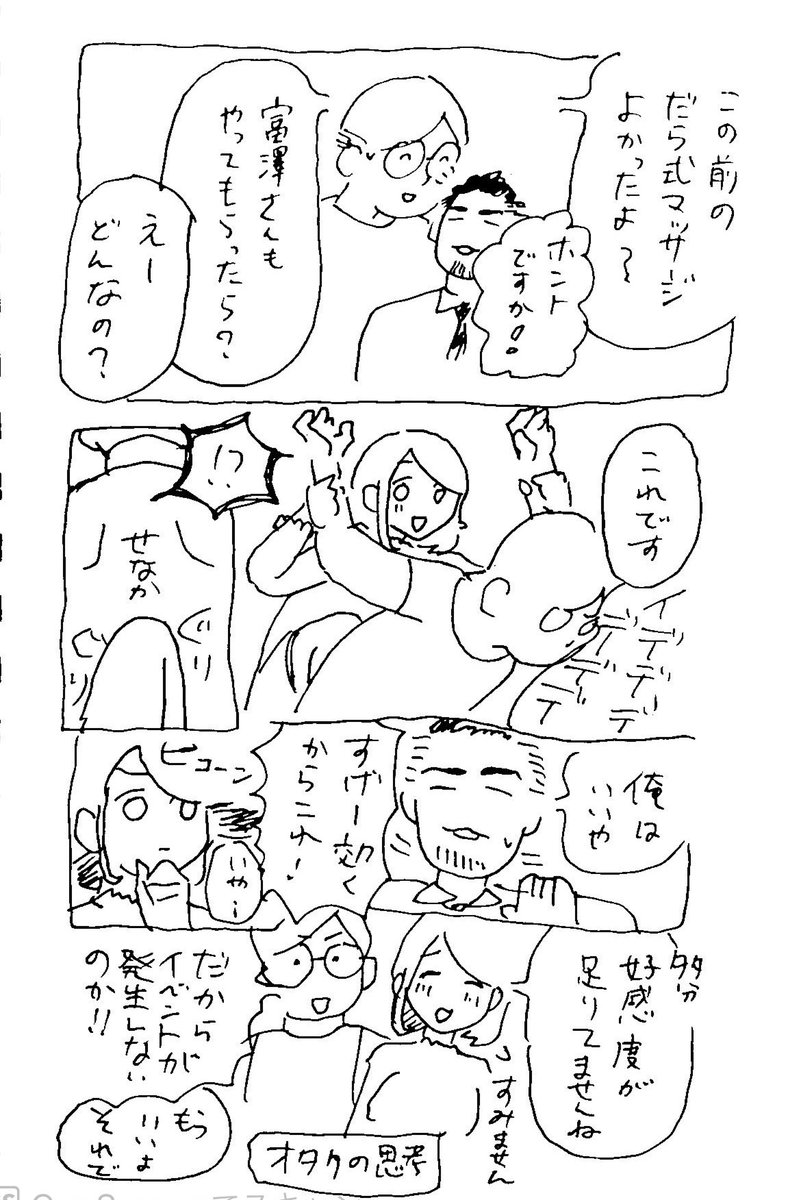 この前の
だら式マッサージ
よかったよ〜
ホント
ですか!
富澤さんも
やってもらったら?
えー
どんなの?
これです
イデデデデデデデ
!?
せなか
ぐり
ぐり
俺は
いいや
すげー効く
からこれ!
ピコーン
いやー
多分
好感度が
足りてませんね
すみません
だから
イベントが
発生しない
のか!!
もう
いいよ
それで
オタクの思考